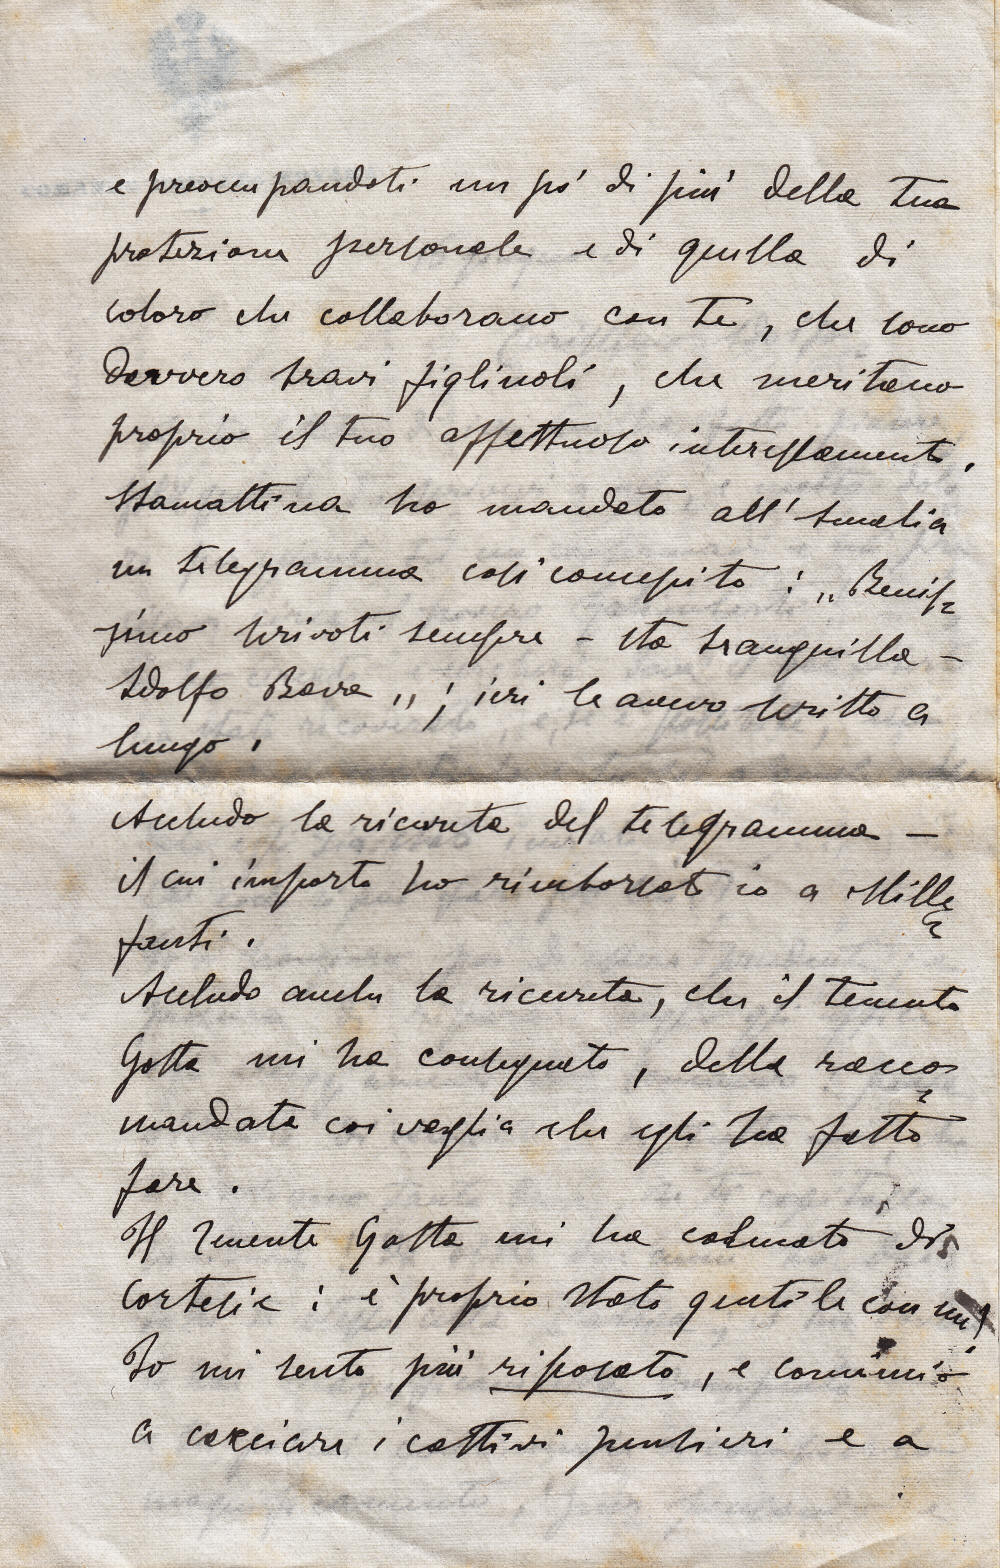 e preoccupandoti un po' di più della tua
protezione personale e di quella di
coloro che collaborano con te, che sono
davvero bravi figliuoli, che meritano
proprio il tuo affettuoso interessamento.
Stamattina ho mandato all'Amalia
un telegramma così concepito: „Benis-
simo scrivoti sempre – sta tranquilla –
Adolfo Bava „; ieri le avevo scritto a
lungo.
Accludo la ricevuta del telegramma –
il cui importo ho rimborsato io a Mille
fanti.
Accludo anche la ricevuta, che il tenente
Gotta mi ha consegnato, della racco-
mandata coi vaglia che egli ha fatto
fare.
Il Tenente Gotta mi ha colmato di
cortesie: è proprio stato gentile con me!
Io mi sento più riposato, e comincio
a cacciare i cattivi pensieri e a